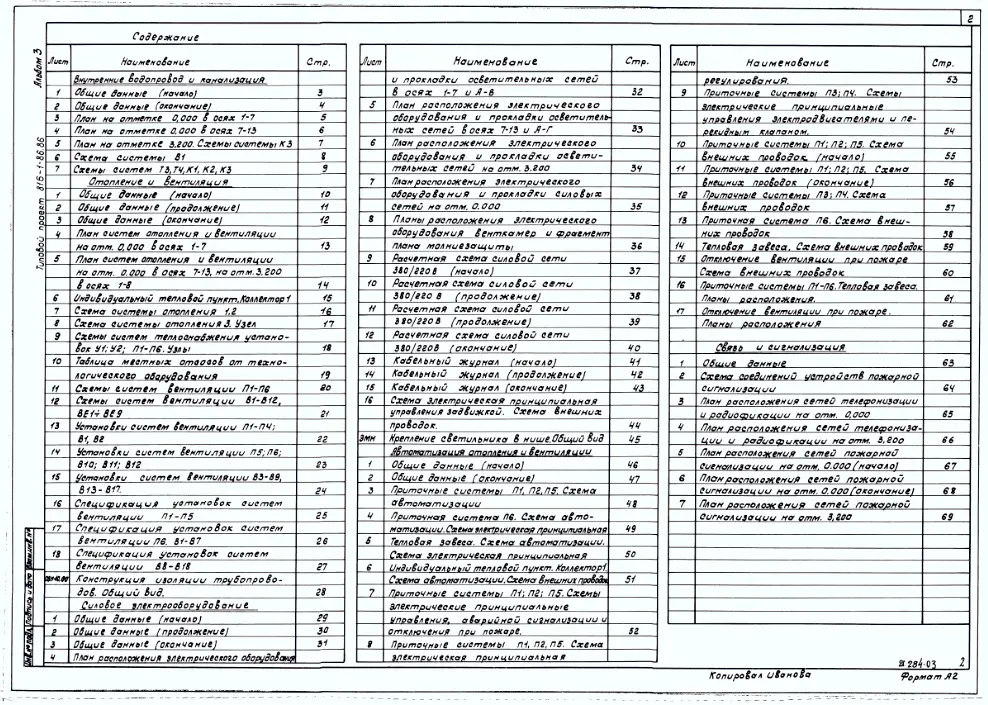 2
Содержание
Альбом 3
Типовой проект 816-1-86.86
Лист Наименование Стр.
Внутренние водопровод и канализация
1 Общие данные (начало) 3
2 Общие данные (окончание) 4
3 План на отметке 0,000 в осях 1-7 5
4 План на отметке 0,000 в осях 7-13 6
5 План на отметке 3.200. Схемы системы К3 7
6 Схема системы В1 8
7 Схемы систем Т3, Т4, К1, К2, К3 9
Отопление и вентиляция
1 Общие данные (начало) 10
2 Общие данные (продолжение) 11
3 Общие данные (окончание) 12
4 План систем отопления и вентиляции
на отм. 0,000 в осях 1-7 13
5 План систем отопления и вентиляции
на отм. 0.000 в осях 7-13, на отм. 3.200
в осях 1-8 14
6 Индивидуальный тепловой пункт. Коллектор 1 15
7 Схема системы отопления 1,2 16
8 Схема системы отопления 3. Узел 17
9 Схемы систем теплоснабжения устано-
вок У1; У2; П1-П6. Узлы 18
10 Таблица местных отсосов от техно-
логического оборудования 19
11 Схемы систем вентиляции П1-П6 20
12 Схемы систем вентиляции В1-В12,
ВЕ1÷ВЕ9 21
13 Установки систем вентиляции П1-П4;
В1, В2 22
14 Установки систем вентиляции П5; П6;
В10; В11; В12 23
15 Установки систем вентиляции В3-В9,
В13-В17. 24
16 Спецификация установок систем
вентиляции П1-П5 25
17 Спецификация установок систем
вентиляции П6. В1-В7 26
18 Спецификация установок систем
вентиляции В8-В18 27
Конструкция изоляции трубопрово-
дов. Общий вид. 28
Силовое электрооборудование
1 Общие данные (начало) 29
2 Общие данные (продолжение) 30
3 Общие данные (окончание) 31
4 План расположения электрического оборудования
Лист Наименование Стр.
и прокладки осветительных сетей
в осях 1-7 и А-В 32
5 План расположения электрического
оборудования и прокладки осветитель-
ных сетей в осях 7-13 и А-Г 33
6 План расположения электрического
оборудования и прокладки освети-
тельных сетей на отм. 3.200 34
7 План расположения электрического
оборудования и прокладки силовых
сетей на отм. 0.000 35
8 Планы расположения электрического
оборудования венткамер и фрагмент
плана молниезащиты 36
9 Расчетная схема силовой сети
380/220 В (начало) 37
10 Расчетная схема силовой сети
380/220 В (продолжение) 38
11 Расчетная схема силовой сети
380/220 В (продолжение) 39
12 Расчетная схема силовой сети
380/220 В (окончание) 40
13 Кабельный журнал (начало) 41
14 Кабельный журнал (продолжение) 42
15 Кабельный журнал (окончание) 43
16 Схема электрическая принципиальная
управления задвижкой. Схема внешних
проводок. 44
ЭМН Крепление светильника в нише. Общий вид 45
Автоматизация отопления и вентиляции
1 Общие данные (начало) 46
2 Общие данные (окончание) 47
3 Приточные системы П1, П2, П5. Схема
автоматизации 48
4 Приточная система П6. Схема авто-
матизации. Схема электрическая принципиальная 49
5 Тепловая завеса. Схема автоматизации.
Схема электрическая принципиальная 50
6 Индивидуальный тепловой пункт. Коллектор 1.
Схема автоматизации. Схема внешних проводок 51
7 Приточные системы П1; П2; П5. Схемы
электрические принципиальные
управления, аварийной сигнализации и
отключения при пожаре. 52
8 Приточные системы П1, П2, П5. Схема
электрическая принципиальная
Лист Наименование Стр.
регулирования. 53
9 Приточные системы П3; П4. Схемы
электрические принципиальные
управления электродвигателями и пе-
рекидным клапаном. 54
10 Приточные системы П1; П2; П5. Схема
внешних проводок. (начало) 55
11 Приточные системы П1; П2; П5. Схема
внешних проводок (окончание) 56
12 Приточные системы П3; П4. Схема
внешних проводок 57
13 Приточная система П6. Схема внеш-
них проводок 38
14 Тепловая завеса. Схема внешних проводок 59
15 Отключение вентиляции при пожаре
Схема внешних проводок. 60
16 Приточные системы П1-П6. Тепловая завеса.
Планы расположения. 61
17 Отключение вентиляции при пожаре.
Планы расположения 62
Связь и сигнализация
1 Общие данные 63
2 Схема соединений устройств пожарной
сигнализации 64
3 План расположения сетей телефонизации
и радиофикации на отм. 0,000 65
4 План расположения сетей телефониза-
ции и радиофикации на отм. 3,200 66
5 План расположения сетей пожарной
сигнализации на отм. 0.000 (начало) 67
6 План расположения сетей пожарной
сигнализации на отм. 0.000 (окончание) 68
7 План расположения сетей пожарной
сигнализации на отм. 3,200 69
Инв.№ подл. Подпись и дата Взам.инв.№
21284-03 2
Копировал Иванова Формат А2